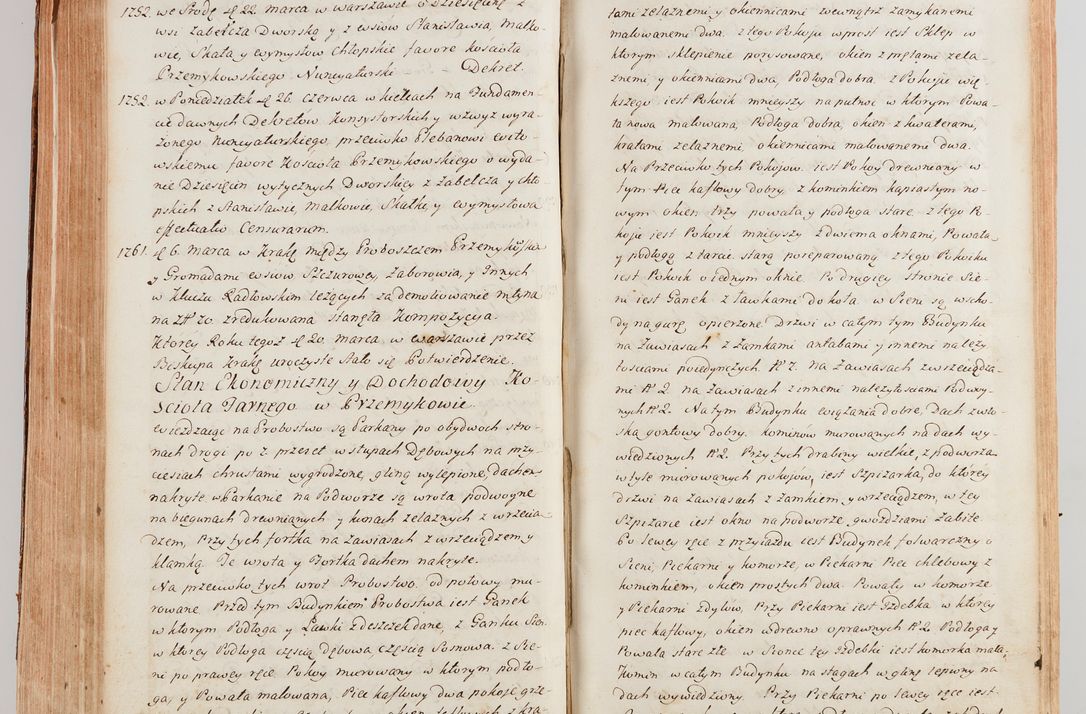 1752. we Srodę d. 22. marca w warszawie o Dziesięcinę z
wsi zabełcza Dworską y z wsiow Stanisławia, małko-
wic, Skała y wymysłow chłopskie favore kościoła
Przemykowskiego Nuncyaturski Dekret.
1752. w Poniedziałek d. 26. czerwca w kielcach na Fundamen-
cie dawnych Dekretow konsystorskich y wzwyz wyra-
żonego Nuncyaturskiego, przeciwko Plebanowi wito-
wskiemu favore kościoła Przemykowskiego o wyda-
nie Dziesięcin wytycznych Dworskiey z zabełcza y chło-
pskich z Stanisławic, małkowic, Skałki, y wymysłowa
effectuatio Censurarum.
1761. d. 6. marca w krakę między Proboszczem Przemykows.
y Gromadami wsiow Szczurowey, zaborowia, y Innych
w kluczu Radłowskim leżących za demoliowanie młyna
na zł 70. zredukowana stanęła kompozycya.
Ktorey Roku tegoż d. 20. marca, w warszawie przez
Biskupa krakę uroczyste stało się Potwierdzenie.
Stan Ekonomiczny y Dochodowy Ko-
scioła Farnego w Przemykowie.
wieżdzaiąc na Probostwo są Parkany po obydwoch stro-
nach drogi po 2. przesce w słupach Dębowych na przy-
ciesiach chrustami wygrodzone, gliną wylepione, dachem
nakryte. w Parkanie na Podworze są wrota podwoyne
na biegunach drewnianych y kunach zelaznych z wrzecia-
dzem, Przy tych fortka na zawiasach z wrzeciądzem y
klamką. Te wrota y Fortka dachem nakryte.
Na przeciwko tych wrot Probostwo, od połowy mu-
rowane. Przed tym Budynkiem Probostwa iest Ganek
w ktorym Podłoga y Ławki z deszczek dane, z Ganku Sien
w ktorey Podłoga częscią dębowa, częscią Sosnowa. z Sie-
ni po prawey ręce Pokoy murowany w ktorym podło-
ga, y Powała malowana, Piec kaflowy dwa pokoje grze-
łami zelaznemi y okiennicami zewnątrz zamykanemi
malowanemi dwa. z tego Pokoju wprost iest Sklep w
ktorym sklepienie porysowane, okien z prętami zela-
znemi y okiennicami dwa, Podłoga dobra. z Pokoju wię-
kszego iest Pokoik mnieyszy na putnoi w ktorym Powa-
ła nowa malowana, Podłoga dobra, okien z kwaterami,
kratami zelaznemi okiennicami malowanemi dwa.
Na Przeciwko tych Pokojow iest Pokoy drewniany w
tym Piec kaflowy dobry, z kominkiem kapiastym no-
wym okien trzy powała y podłoga stare. z tego Po-
koju iest Pokoik mnieyszy z dwiema oknami, Powałą
y podłogą z tarcic starą poreparowaną. z tego Pokoiku
iest Pokoik o iednym oknie. Po drugiey stronie Sie-
ni iest Ganek z ławkami do koła. w Sieni są wscho-
dy na gurę opierzone. Drzwi w całym tym Budynku
na zawiasach z zamkami antabami y innemi należy-
tosciami poiedynczych N 7. na zawiasach z wrzeciądza-
mi N 2. na zawiasach z innemi należytosciami Podwoy-
nych N 2. Na tym Budynku wiązania dobre, Dach z wło-
ska gontowy dobry. kominow murowanych na dach wy-
wiedzionych N 2. Przy tych drabiny wielkie, z podworza
w tyle murowanych pokojów, iest Szpizarka, do ktorey
drzwi na zawiasach z zamkiem, y wrzeciądzem, w tey
Szpizarce iest okno na podworze gwoździami zabite.
Po lewey ręce z przyiazdu iest Budynek folwareczny o
Sieni, Piekarni y komorze, w Piekarni Piec chlebowy z
kominkiem, okien prostych dwa. Powały w komorze
y Piekarni z dylow, Przy Piekarni iest Izdebka w ktorey
piec kaflowy, okien w drewno oprawnych N 2. Podłoga y
Powała stare złe. w Sionce tey Izdebki iest komorka mała.
Komin w całym Budynku na stagach w glinę lepiony na
dach wywiedziony. Przy Piekarni po lewey ręce iest